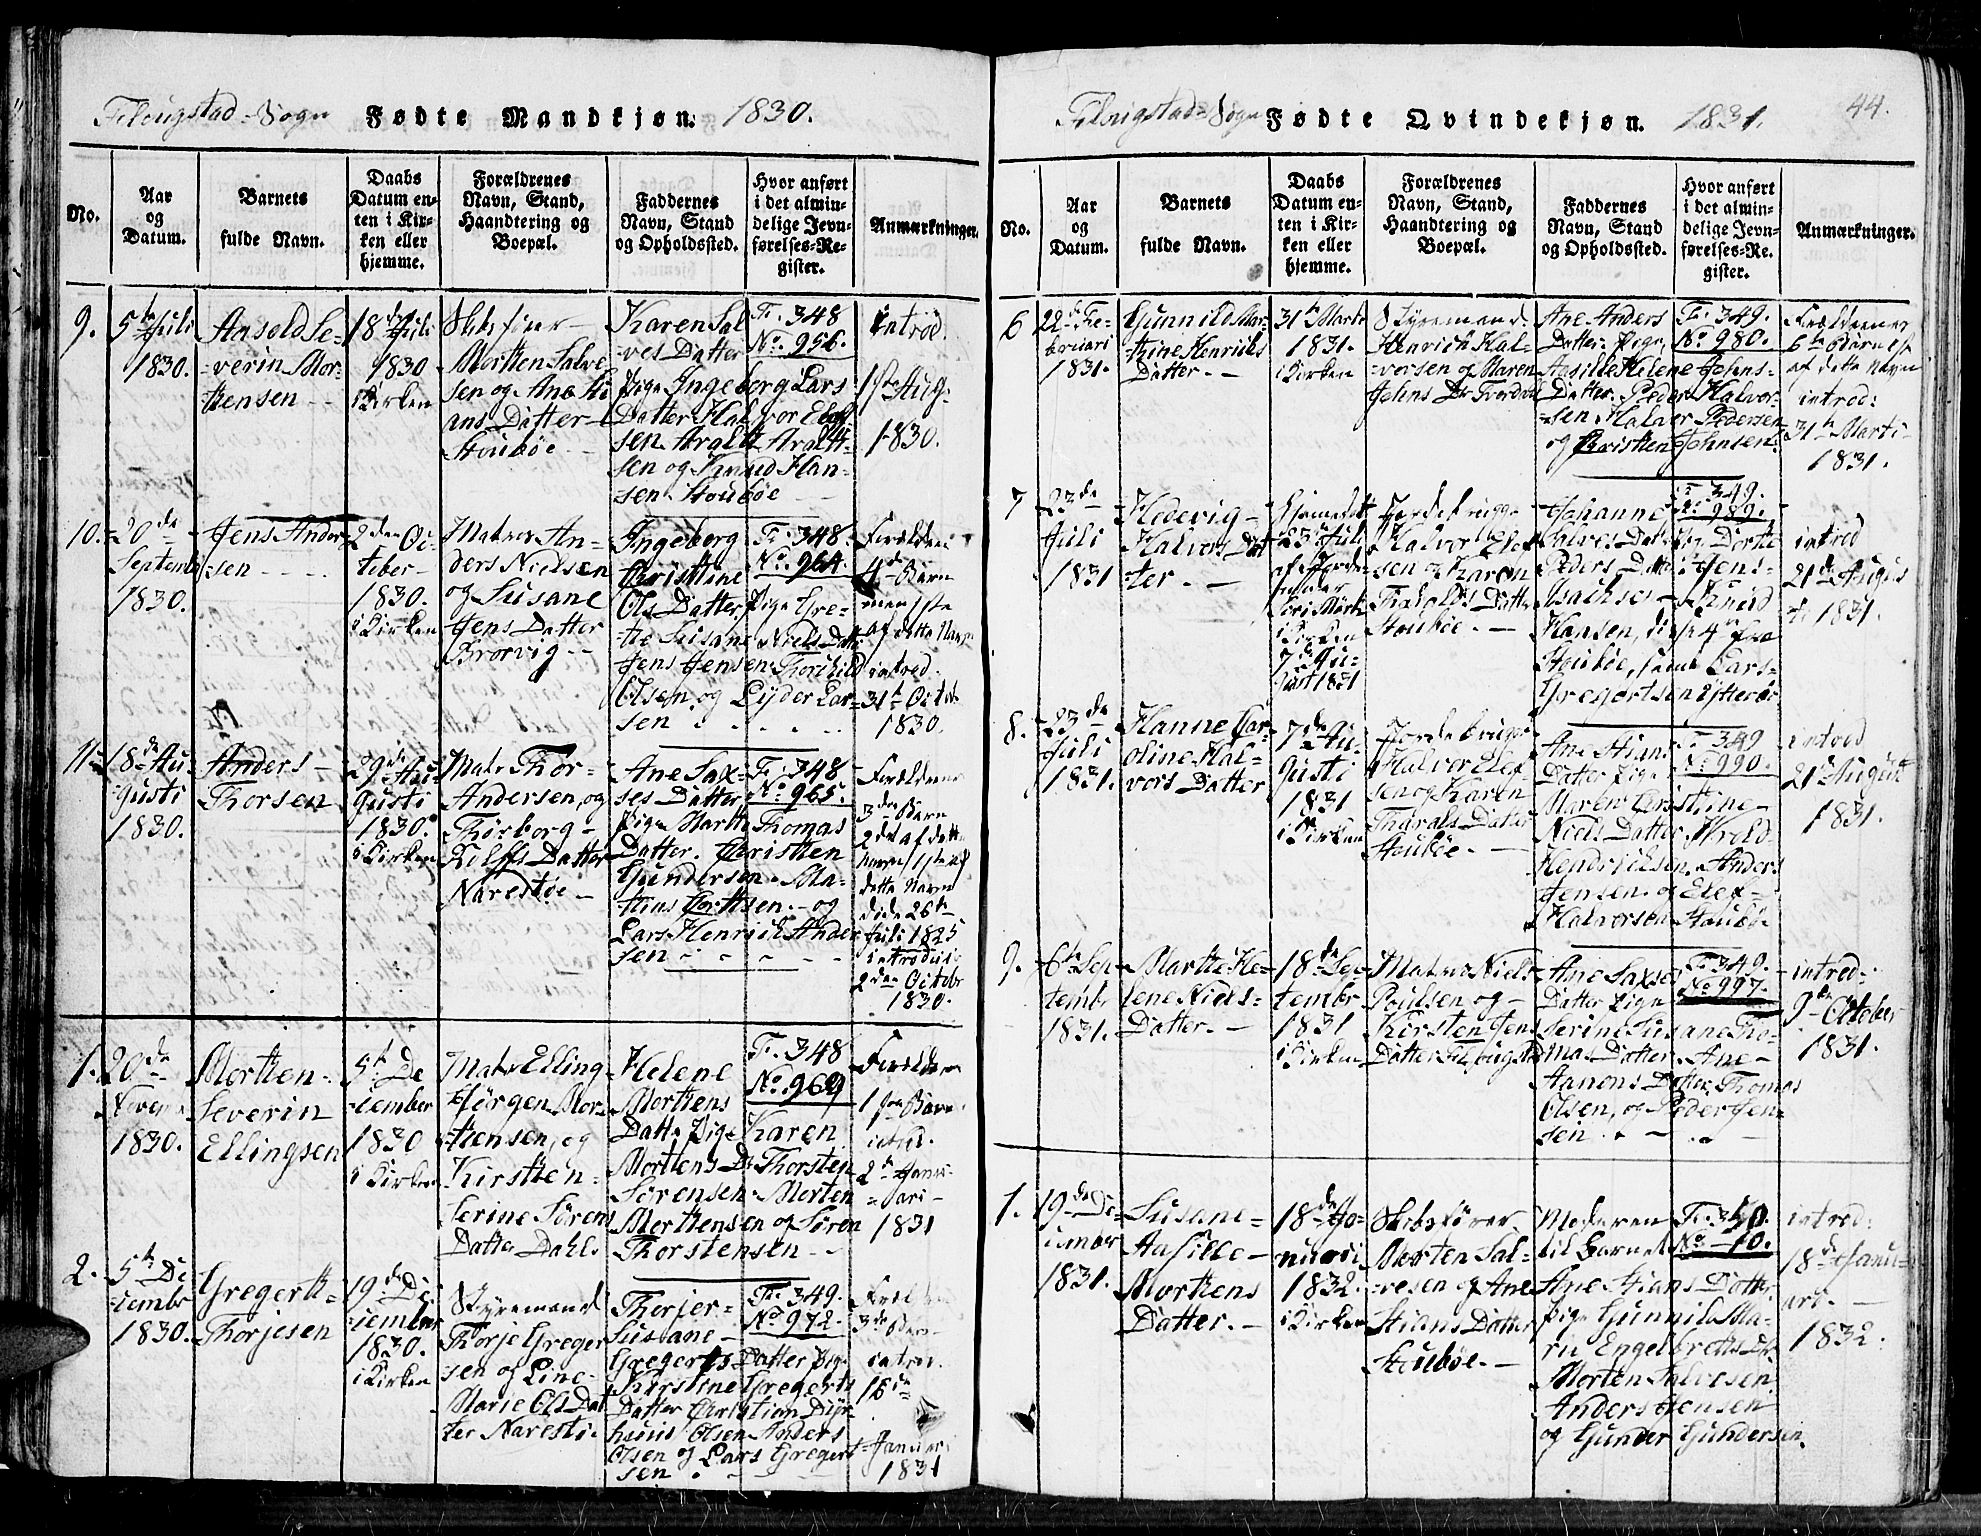 Flougstad-Sogn Fødte Mandkjøn. 1830.
No.
Aar
og
Datum.
Barnets
fulde Navn.
Daabs
Datum en-
ten i Kir-
ken eller
hjemme.
Forældrenes
Navn, Stand,
Haandtering og
Boepæl.
Faddernes
Navn, Stand
og Opholdssted.
Hvor anført
i det almin-
delige Jevn-
førelses-Re-
gister.
Anmærkninger.
9.
5te Juli
1830.
Se-
verin Mor-
tensen
18de Juli
1830
i Kirken
Skibsfører
Mortten Salve
sen og Ane Sti
ans Datter
Stoubøe
Karen Sal
ves Datter
Pige Ingeborg Lars
Datter Halvor Elef
sen Aralt Aralt-
sen og Knud Han-
sen Stoubøe
F. 348
No. 956.
introd.
1ste Aug.
1830.
10.
20de
Septemb
1830.
Jens Ander
sen
2den Oc-
tober
1830.
i Kirken
Matros An-
ders Nielsen
og Susane
Jens Datter
Brorvig
Ingeborg
Christine
Ols Datter, Pige Gre-
the Susane Niels Datt
Jens Jensen Thorkild
Olsen, og Lyder Lar-
sen
F. 348
No. 964.
4de Barn
men 1ste
af dette Navn
introd.
31te Octob
1830.
11.
18de Au-
gusti
1830.
Anders
Thorsen
29de Au-
gusti
1830.
i Kirken
Matr Thor
Andersen, og
Thorborg
Rolffs Datter
Narestøe
Ane Sax-
ses Datter
Pige Marth Thomas
Datter. Christen
Gundersen. Ma-
thias
sen. og
Lars Henrich Ander
sen
F. 348
No. 965.
Forældrene
3de Barn
2det af dette
Navn 1ste af
dette Navn
døde 26te
Juli 1825
2den Octobr
1830.
1.
20de
Novem
1830.
Mortten
Severin
Ellingsen
5te De
cember
1830
i Kirken
Matr Elling
Jørgen Mor-
tensen, og
Kirsten
Serine Sørens
Datter Dahl
Helene
Mortens
Datte Pige Karen
Mortens Dr Thorsten
Sørensen Morten
Mortensen og Søren
Thorstensen
F. 348
No. 969
Forældrene
1ste Barn
introd.
2de Janu-
ari
1831
2.
5te De
cembr
1830.
Gregert
Thorjesen
19de De
cember
1830.
i Kirken
Styremand
Thorje Greger
sen og Line
Marie Ols Dat
ter Naresti
Thorjer
Susane
Gregerts Datter Pige
Kirstine Gregerts
Datter Christian
Olsen Anders
Olsen og Lars Gregert
sen
F. 349.
No. 972.
3de Barn
introd.
16de
Januari
1831
Flougstad Sogn Fødte Qvindekjøn. 1831. 44.
No.
Aar
og
Datum.
Barnets
fulde Navn.
Daabs
Datum en-
ten i Kir-
ken eller
hjemme.
Forældrenes
Navn, Stand,
Haandtering og
Boepæl.
Faddernes
Navn, Stand
og Opholdssted.
Hvor anført
i det almin-
delige Jevn-
førelses-Re-
gister.
Anmærkninger.
6
22de Fe-
bruari
1831.
Gunnild Mar-
thine Henrichs
Datter.
31te Marti
1831.
i Kirken
Styremand
Henrich Hal-
vorsen og Maren
Johns Dr
Ane Anders
Datter. Pige,
Aasille Helene Johns-
Datter. Peder Halvor-
sen Halvor Pedersen
og Christen Johnsen
F. 349.
No 980.
Forældrenes
6te Barn 1ste
af dette Navn
introd:
31te Marti
1831.
7
23de
Juli
1831
Hedevig
Halvors Dat
ter.
Hjemmedøbt
23de Juli
af Jorde-
moder
i Kirken
7de Au-
gust 1831
Jordebruger
Halvor Elef
sen og Karen
Datter
Stoubøe.
Johanne
Salves Datter Pige Dorthe
Peders Datter Jens
Isachsen Knud
Hansen, disse 4 fra
Stoubøe, samt Lars
Gregertsen Ytterøe
F. 349.
No 989.
introd
21de Augus
ti 1831.
8.
23de
Juli
1831.
Hanne Car
oline Hal-
vors Datter
7de Au-
gusti
1831
i Kirken
Jordebruger
Halvor Elef
sen og Karen
Tharals Datter
Stoubøe.
Ane Stians
Datter Pige
Maren Christine
Niels Datter.
Hendrichsen. Anders
Jensen. og Elef-
Halvorsen Stoubøe
F. 349
No 990.
introd
21de August
1831.
9.
6te Sep
tembr
1831.
Marthe He-
lene Niels-
Datter.
18de Sep
tembr
1831
i Kirken
Matros Niels
Poulsen og
Kirsten Jens
Datter Flougstad
Ane Saxses
Datter Pige
Serine Susane Tho-
mas Datter. Ane
Aanons Datter Thomas
Olsen, og Peder Jen-
sen
F. 349.
No 997.
introd.
9de October
1831.
1.
19de De-
cember
1831.
Susane
Aasille
Mortens
Datter.
18de Ja-
nuari
1832.
i Kirken
Skibsfører
Morten Sal-
vesen og Ane
Stians Datter
Stoubøe.
Moderen
til Barnet
Ane Stians Datter
Pige Gunnild Ma-
rie Engelbrets Dr.
Morten Salvesen.
Anders Jensen
og Gunder Gundersen.
F. 350.
No 10.
introd:
18de Janu-
ari.
1832.